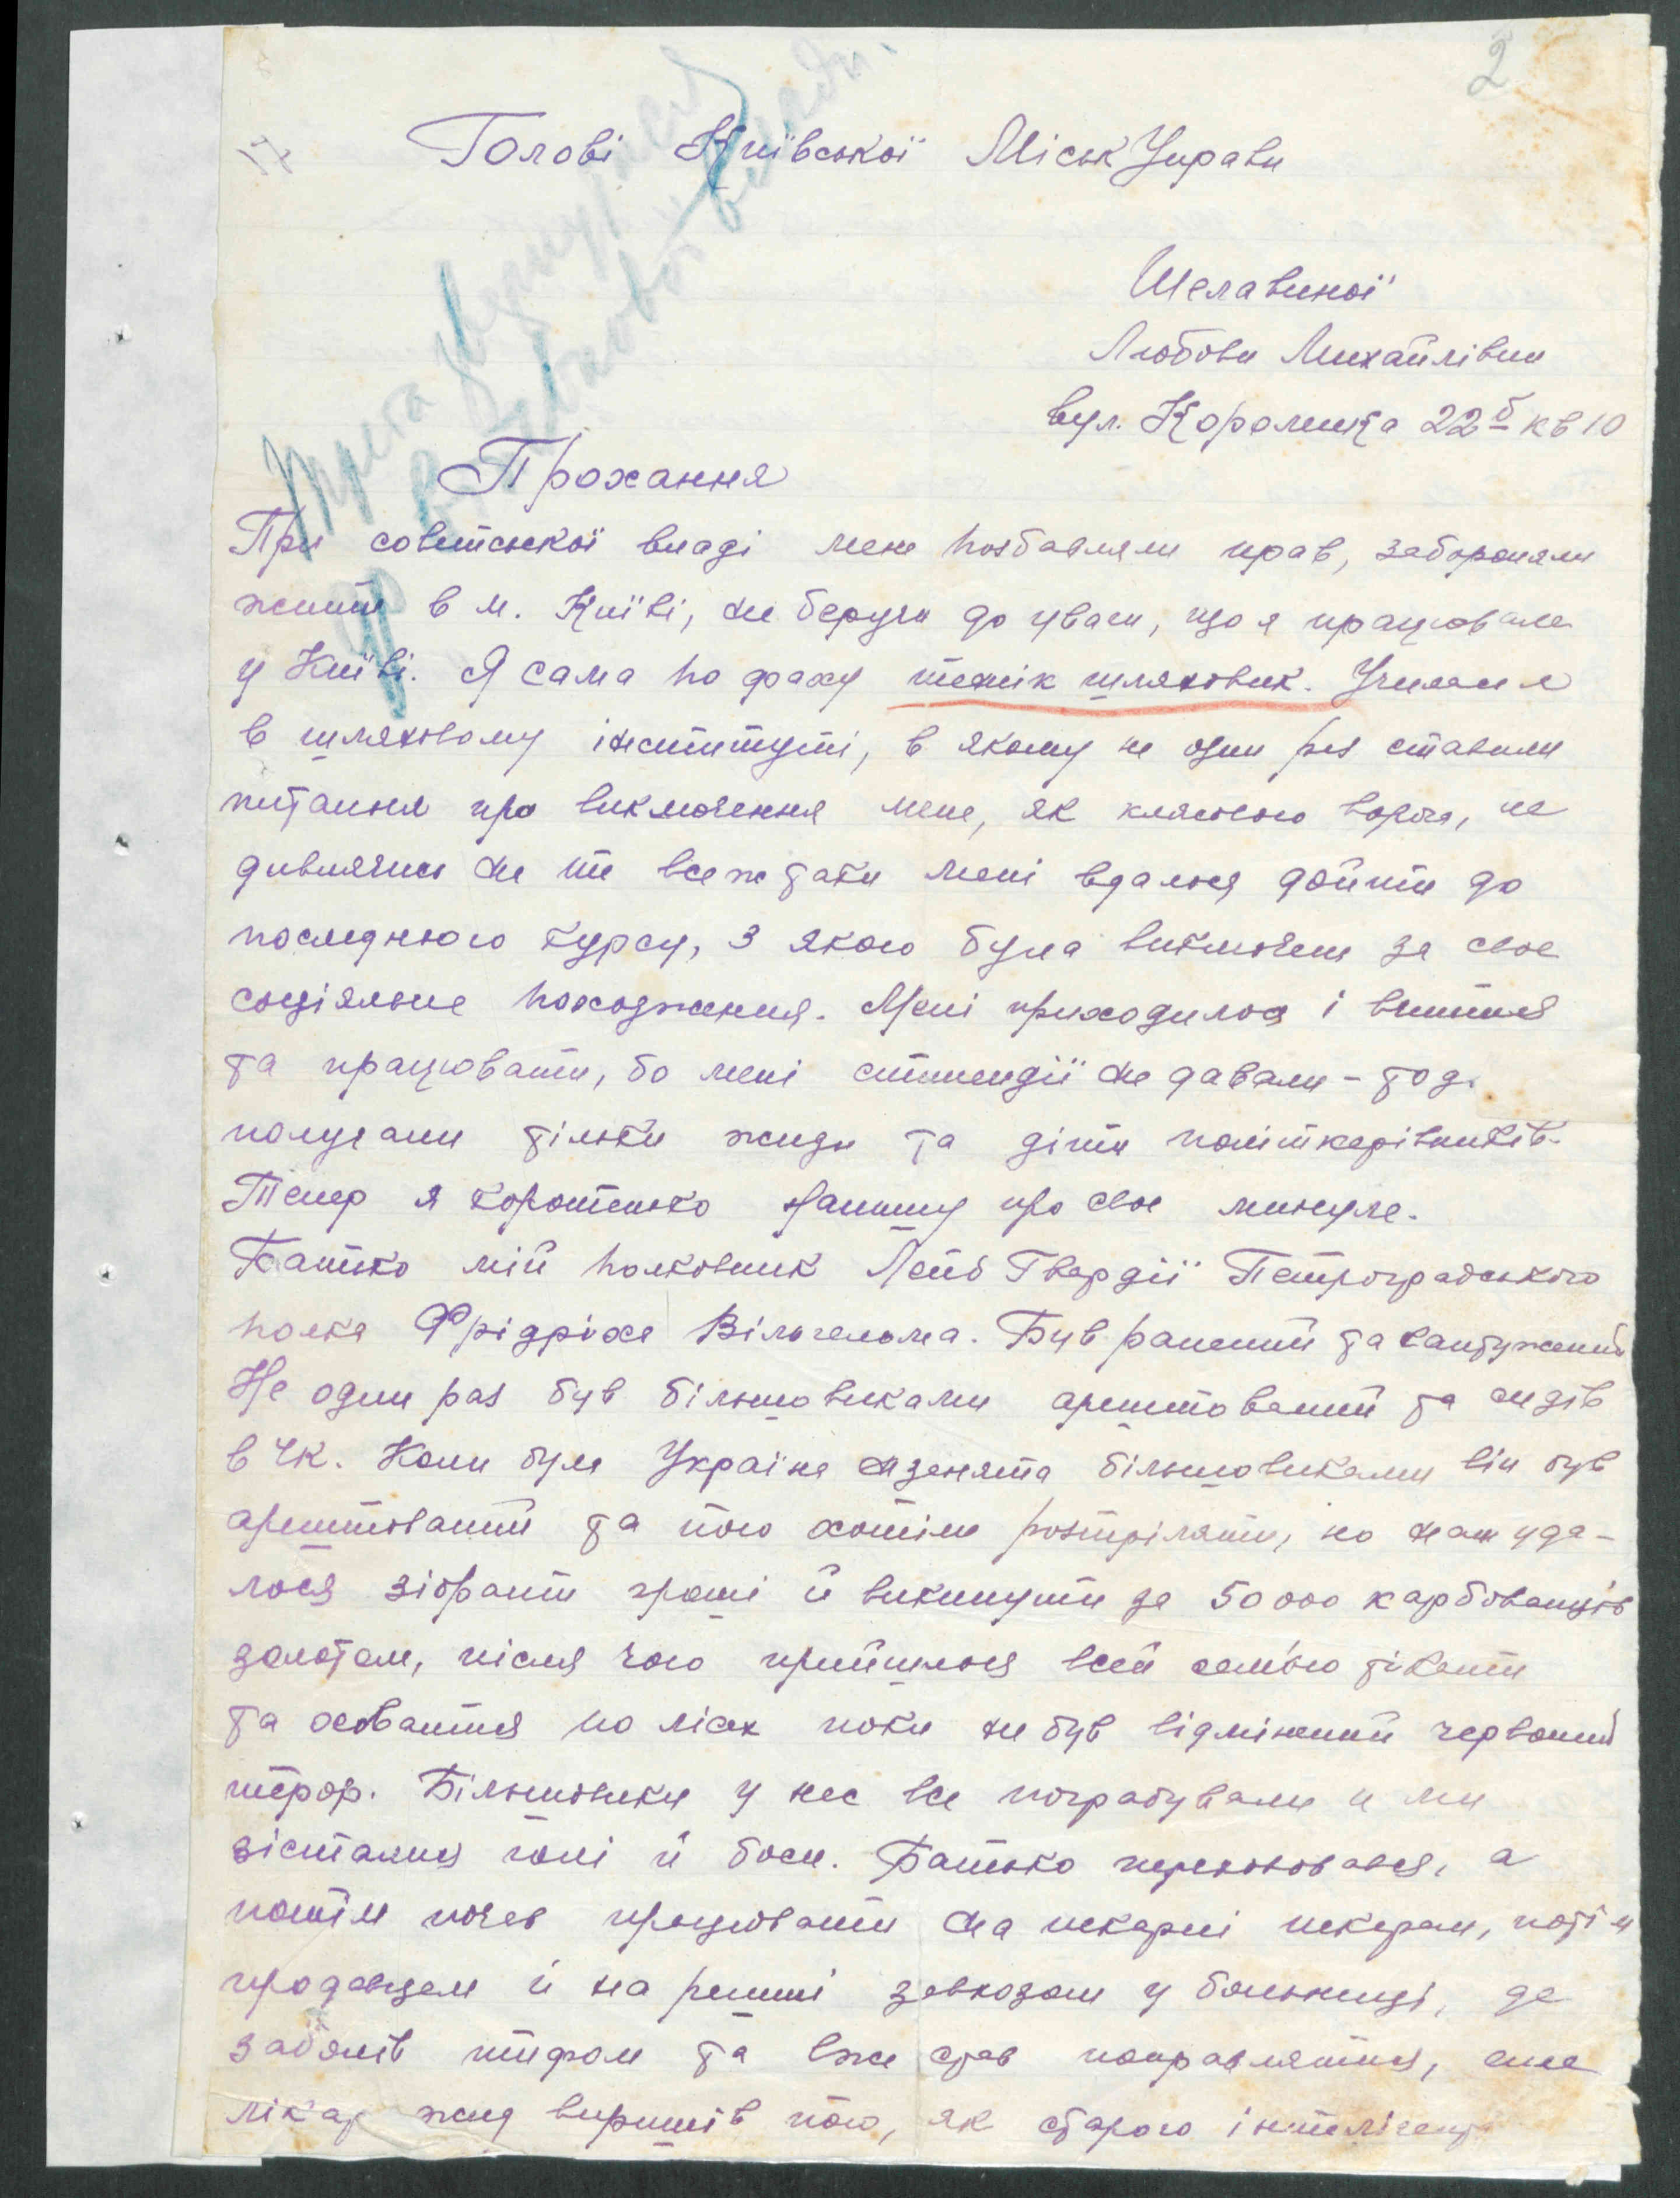 2
17
Голові Київської МіськУправи
Шелавиної
Любови Михайлівни
вул. Короленка 22б кв 10
Прохання
При совитській владі мене позбавляли прав, забороняли
жити в м. Київі, не беручи до уваги, що я працювала
у Київі. Я сама по фаху технік шляховик. Училася
в шляховому інститутті, в якому не один раз ставили
питання про виключення мене, як клясового ворога, не
дивлячись на те все ж таки мені вдалося дойти до
последнього курсу, з якого була виключена за своє
соціяльне походження. Мені приходилося і вчитися
та працювати, бо мені стипендії не давали - тоді
получали тільки жиди та діти політкерівників.
Тепер я коротенько напишу про своє минуле.
Батько мій полковник Лейб Гвардії Петроградського
полка Фрідріха Вільгельма. Був ранений та контужений
Не один раз був більшовиками арештований та сидів
в ЧК. Коли була Україна занята більшовиками він був
арештований та його хотіли розтріляти, но нам уда-
лося зібрати гроші й викинути за 50000 карбованців
золотом, після чого прийшлося всей сем'ою тікати
та сховатися по лісах поки не був відмінений червоний
терор. Більшовики у нас все пограбували и ми
зістались голі й боси. Батько переховався, а
потім почав працювати на пекарні пекарем, потім
продавцем й на решті завхозом у больниці, де
заболів тифом та вже став поправлятись, але
лікар жид вирішів його, як старого інтелігента